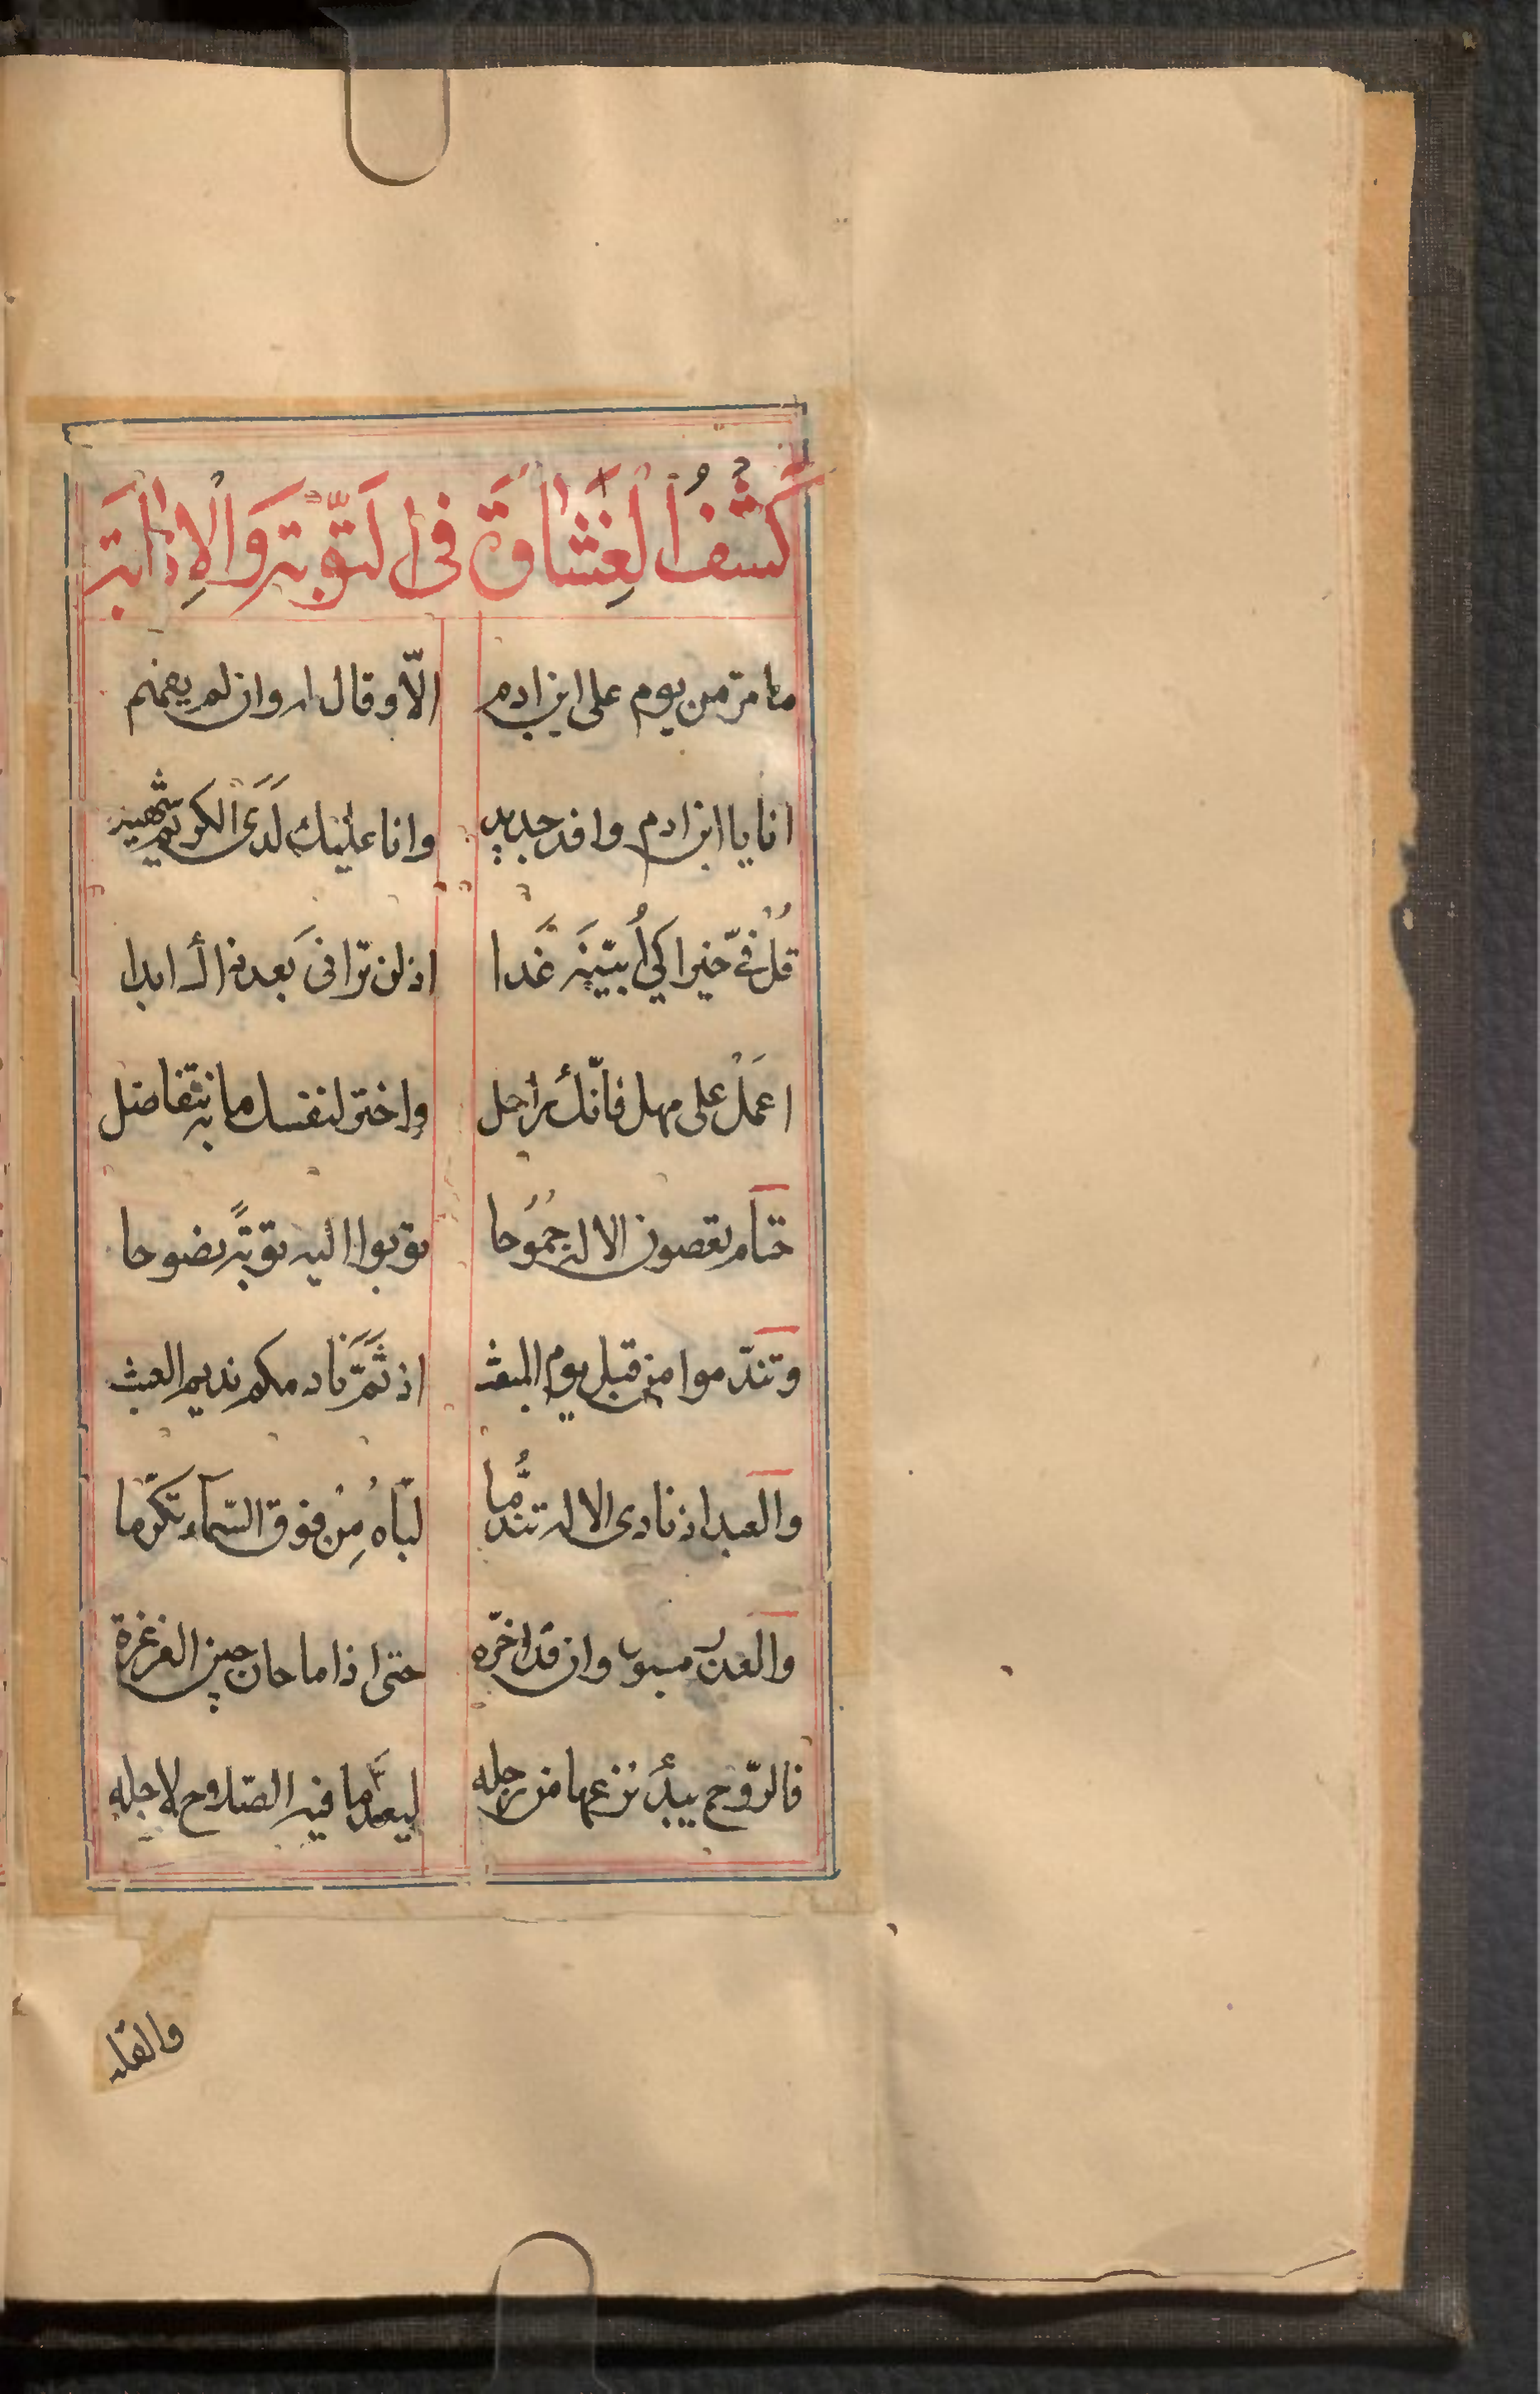 كَشْفُ الْغِشَاوَةِ فى التَّوْبَةِ وَالْاِنَابَةِ
ما مرّ من يوم على ابن ادم الّا وقال له وان لم يفهم
انا يا ابن ادم وافد جديد وانا عليك لَدَى الكريم شهيد
قُلْ فىّ خيرا كى اُبيّنه غَدا اذ لن ترانى بعد ابدا
اعمَلْ على مهل فانّك راحل واختر لنفسك ما به تتفاضل
حتام تعصون الاله جُمُوحا توبوا اليه توبةً نصوحا
وتندّموا من قبل يوم المبعث اذ ثَمَّ نادمكم نديم العبث
والعبد اذ نادى الاله تندُّما لبّاهُ مِنْ فوق السّماء تكرّما
وان قد اخّره حتى اذا ما حان حين الغرغرة
فالرّوح يبدأ نزعها من رجله ما فيه الصّلاح لاجله
والقلب